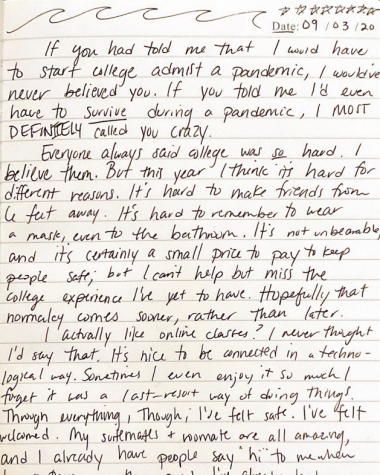 Date: 09/03/20
If you had told me that I would have
to start college admist a pandemic, I would've
never believed you. If you told me I'd even
have to survive during a pandemic, I MOST
DEFINITELY called you crazy.
Everyone always said college was so hard. I
believe them. But this year I think it's hard for
different reasons. It's hard to make friends from
6 feet away. It's hard to remember to wear
a mask, even to the bathroom. It's not unbearable,
and it's certainly a small price to pay to keep
people safe, but I can't help but miss the
college experience I've yet to have. Hopefully that
normalcy comes sooner, rather than later.
I actually like online classes? I never thought
I'd say that. It's nice to be connected in a techno-
logical way. Sometimes I even enjoy it so much I
forget it was a last-resort way of doing things.
Through everything, Though, I've felt safe. I've felt
welcomed. My suitemates + roomate are all amazing,
and I already have people say "hi" to me when